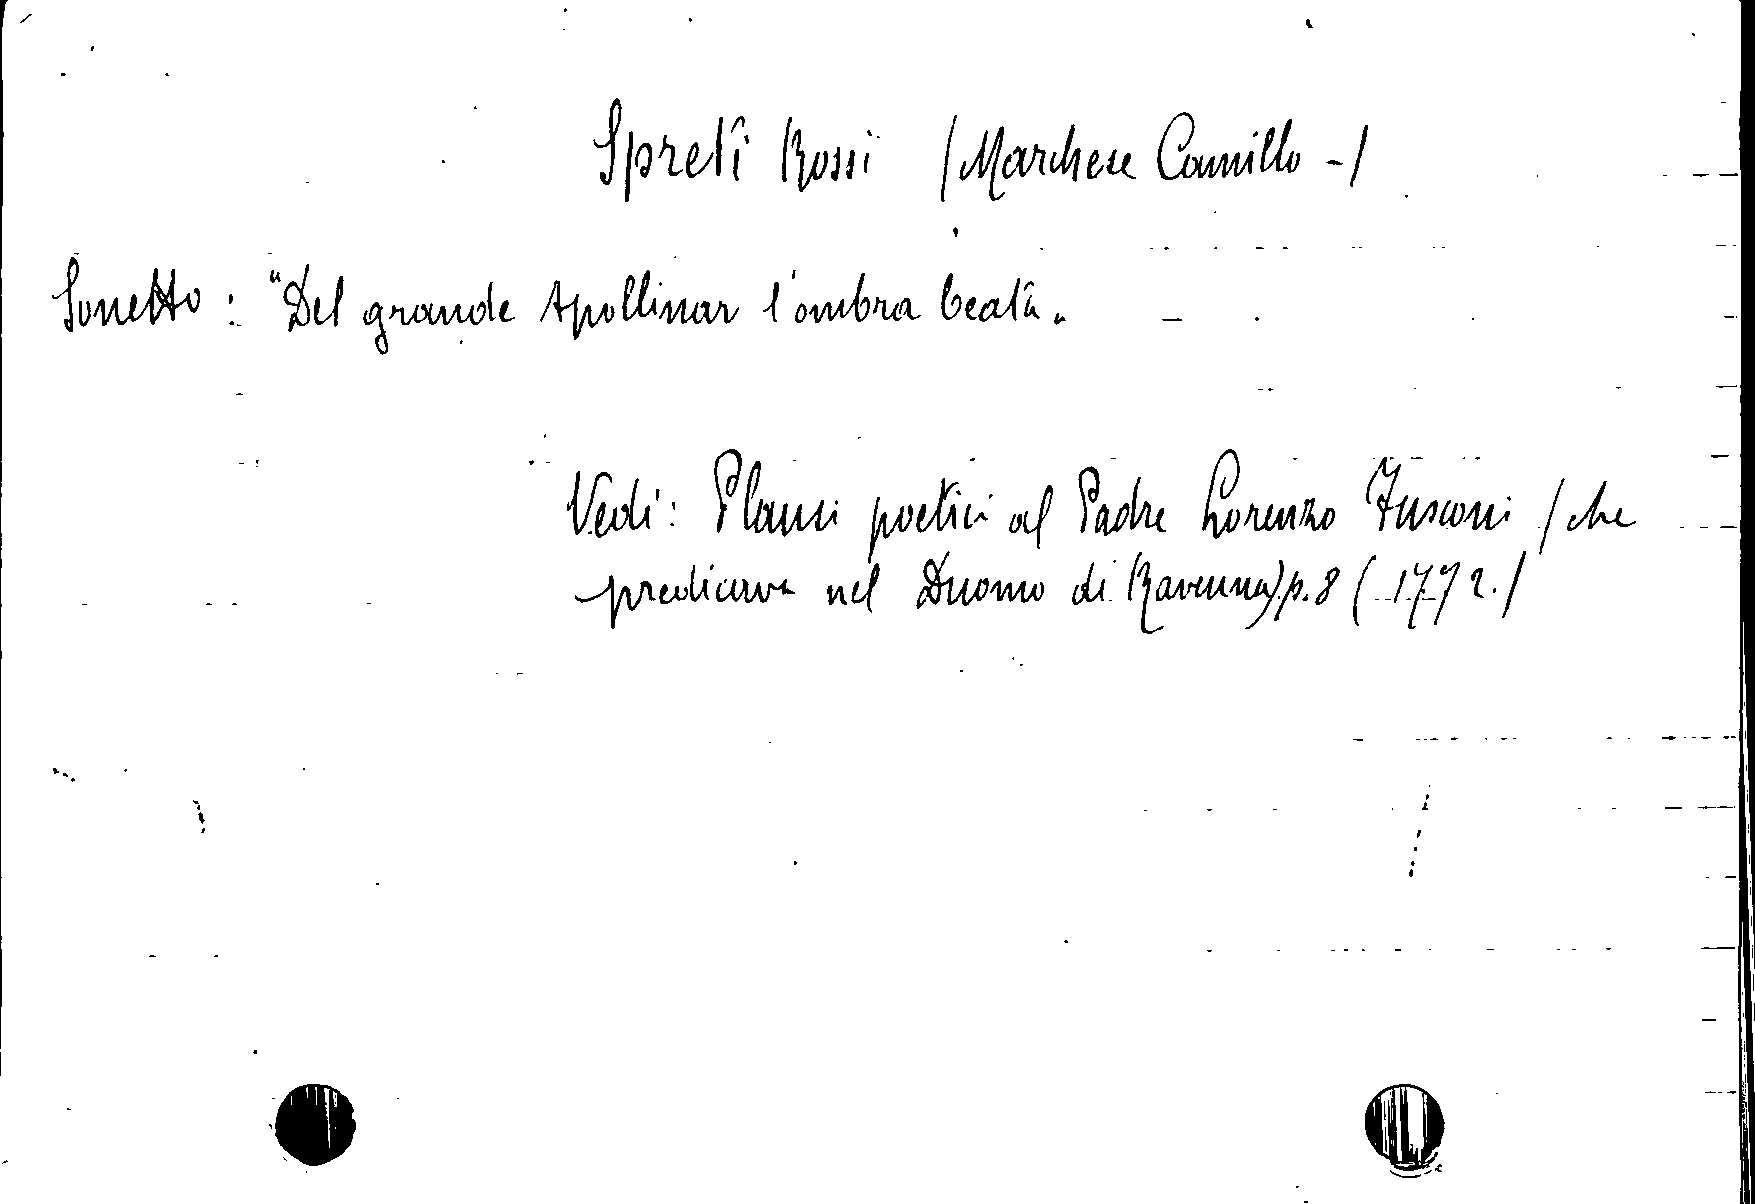 Spreti Rossi (Marchese Camillo -)
Sonetto: "Del grande Apollinar l'ombra beata"
Vedi: Plausi poetici al Padre Lorenzo Fusconi (che
predicava nel Duomo di Ravenna) p. 8 (1772.)